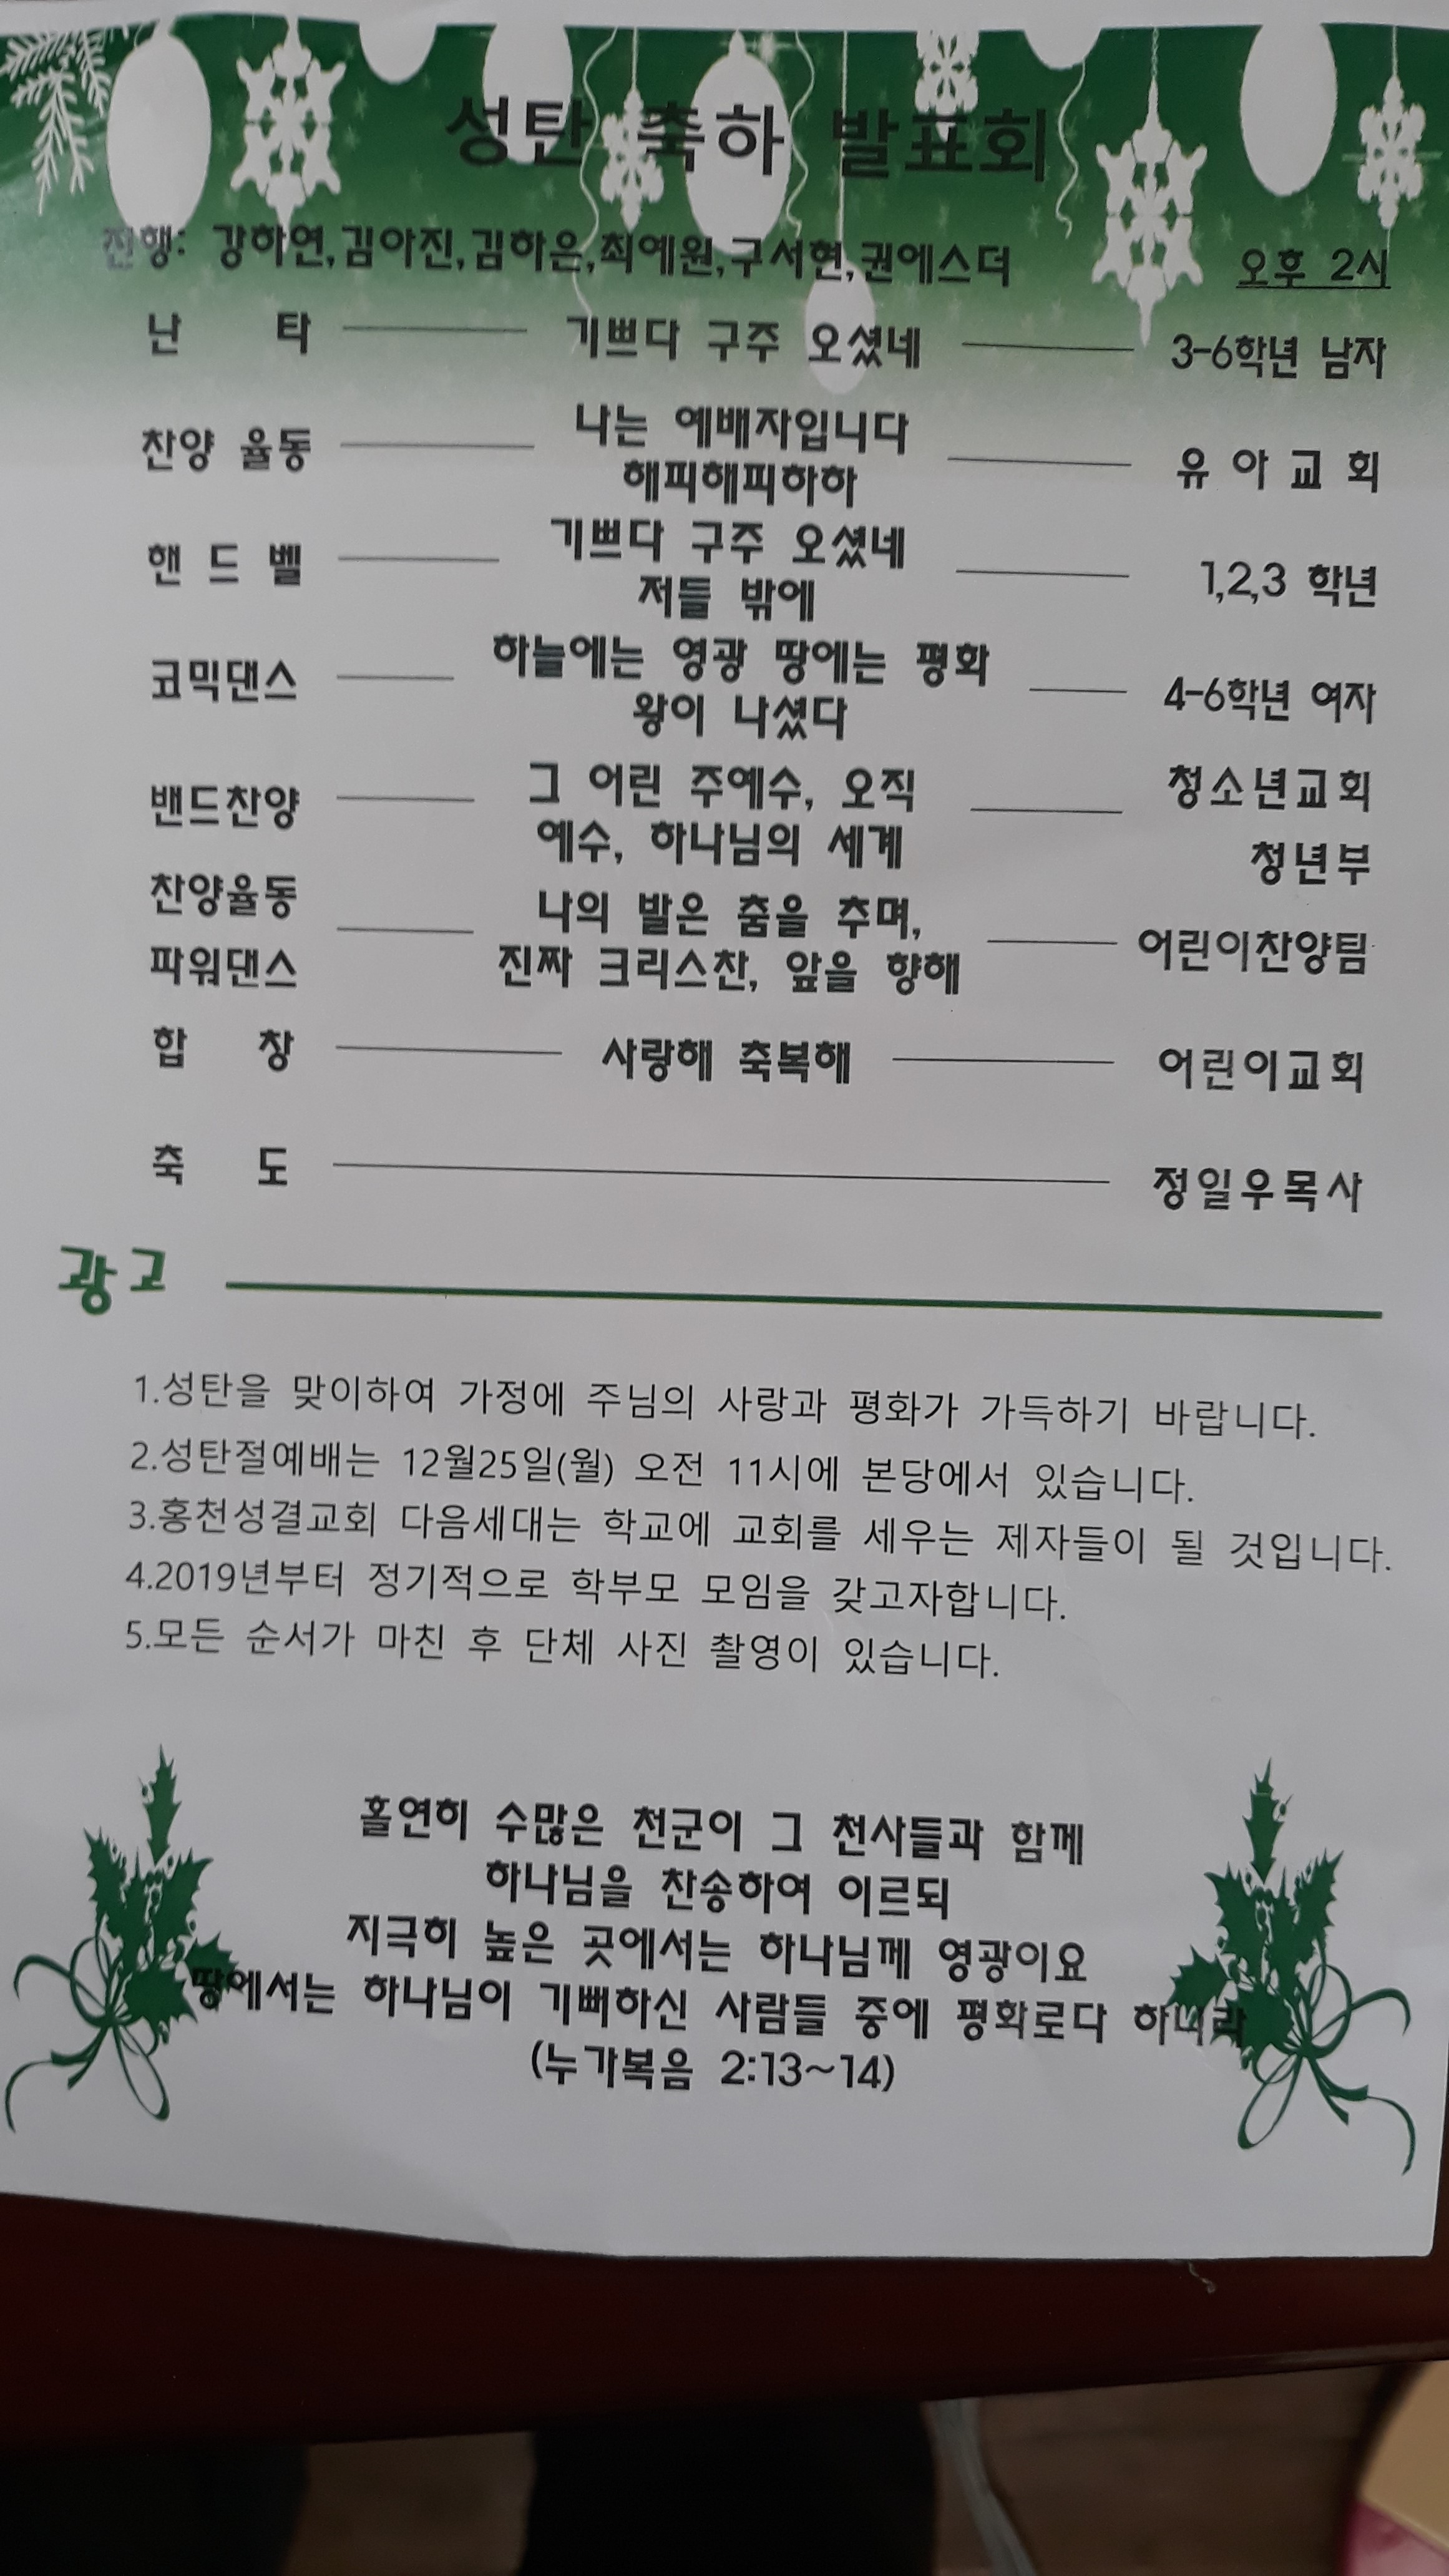 성탄 축하 발표회
진행: 강하연,김아진,김하은,최예원,구서현,권에스더 오후 2시
난 타 기쁘다 구주 오셨네 3-6학년 남자
찬양 율동 나는 예배자입니다 해피해피하하 유 아 교 회
핸 드 벨 기쁘다 구주 오셨네 저들 밖에 1,2,3 학년
코믹댄스 하늘에는 영광 땅에는 평화 왕이 나셨다 4-6학년 여자
밴드찬양 그 어린 주예수, 오직 예수, 하나님의 세계 청소년교회 청년부
찬양율동 파워댄스 나의 발은 춤을 추며, 진짜 크리스찬, 앞을 향해 어린이찬양팀
합 창 사랑해 축복해 어린이교회
축 도 정일우목사
광고
1.성탄을 맞이하여 가정에 주님의 사랑과 평화가 가득하기 바랍니다.
2.성탄절예배는 12월25일(월) 오전 11시에 본당에서 있습니다.
3.홍천성결교회 다음세대는 학교에 교회를 세우는 제자들이 될 것입니다.
4.2019년부터 정기적으로 학부모 모임을 갖고자합니다.
5.모든 순서가 마친 후 단체 사진 촬영이 있습니다.
홀연히 수많은 천군이 그 천사들과 함께
하나님을 찬송하여 이르되
지극히 높은 곳에서는 하나님께 영광이요
땅에서는 하나님이 기뻐하신 사람들 중에 평화로다 하니라
(누가복음 2:13~14)